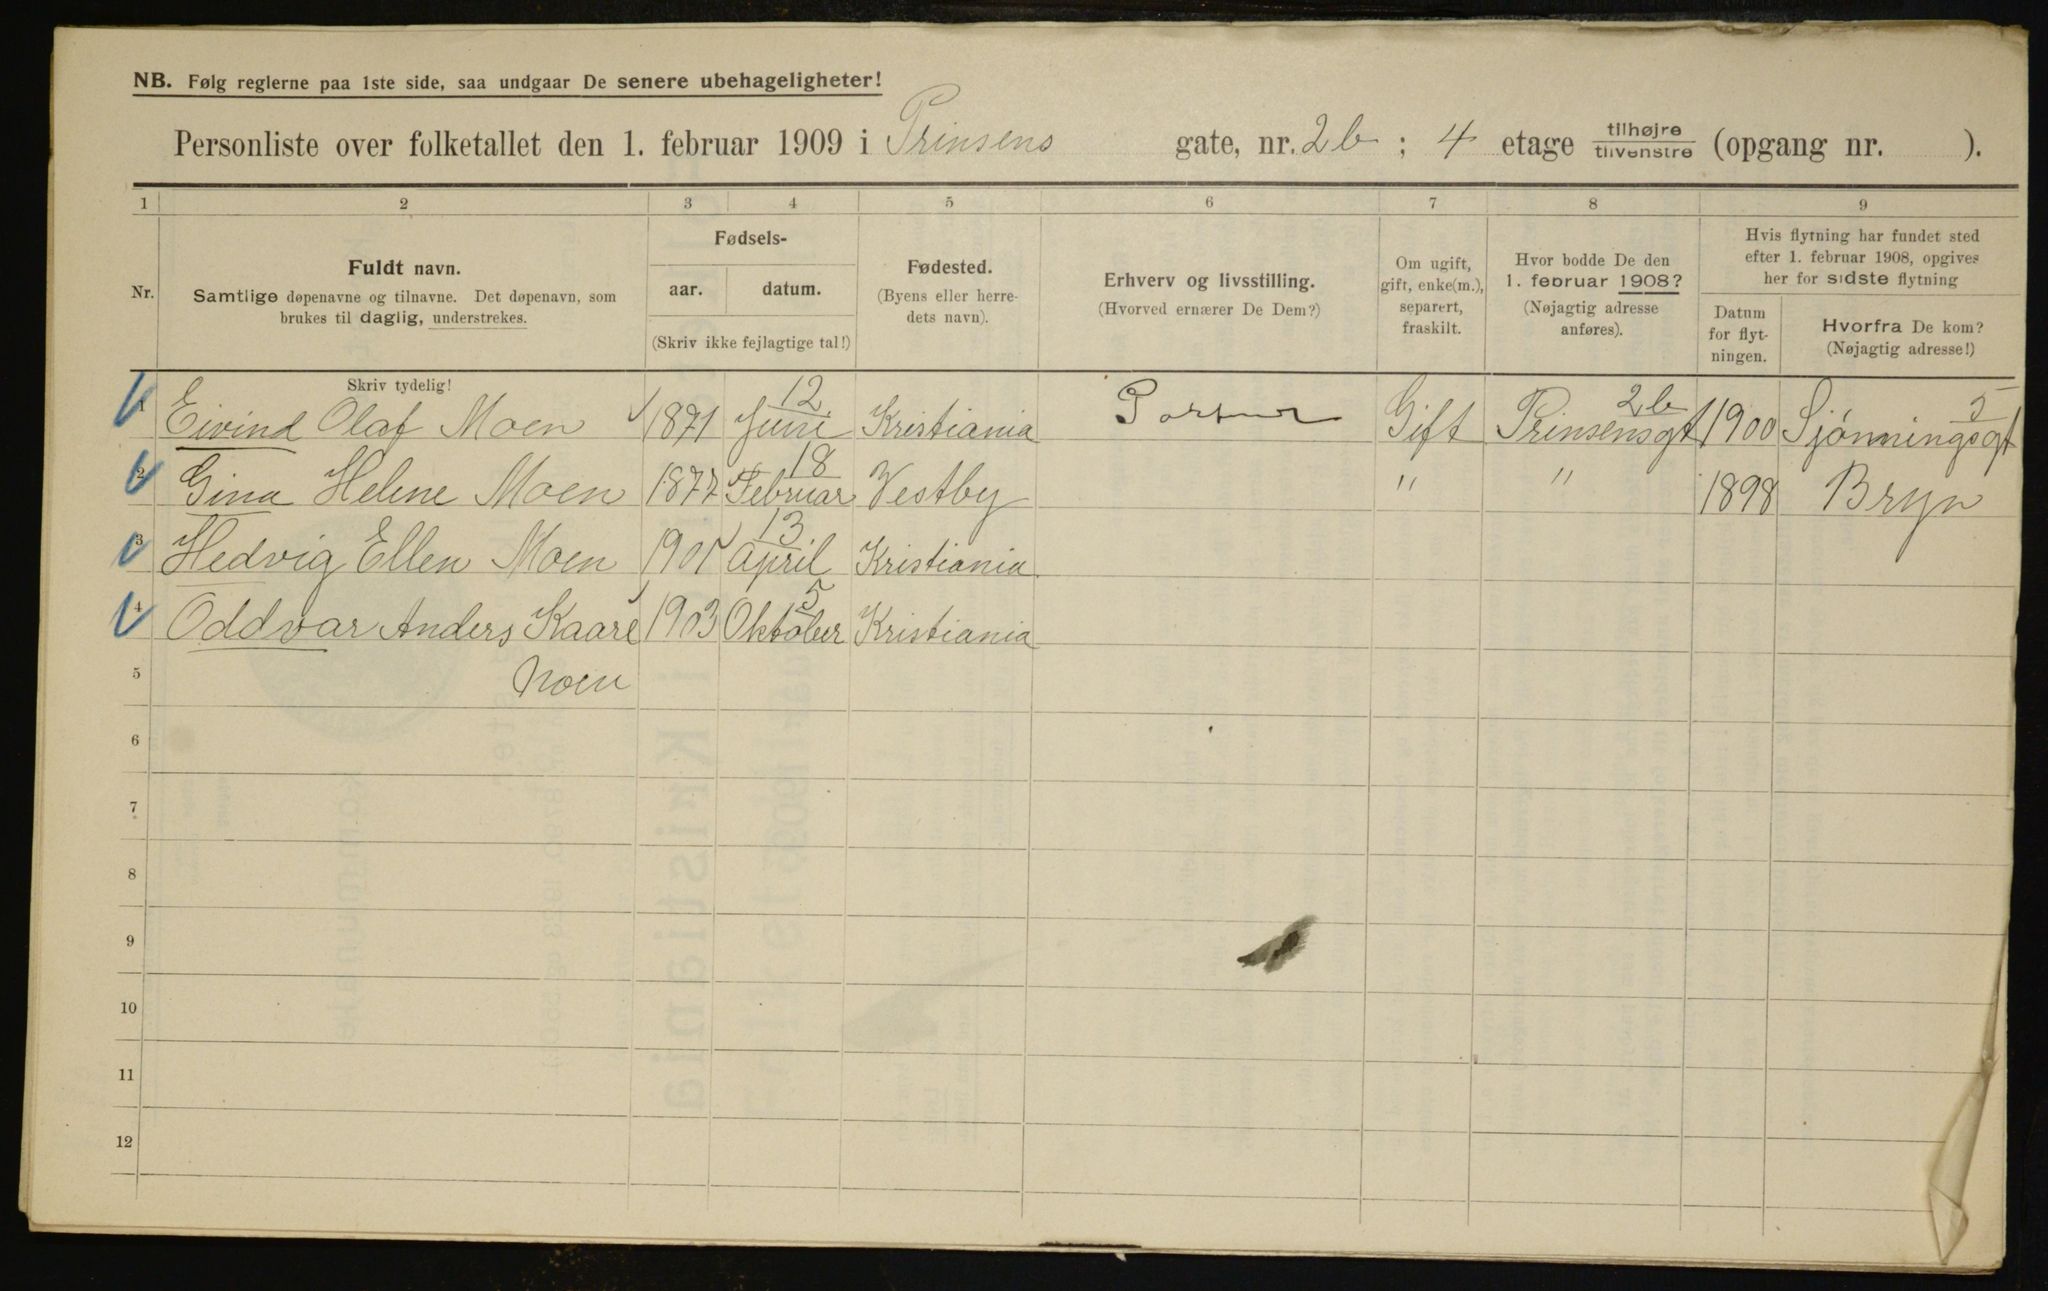 NB. Følg reglerne paa 1ste side, saa undgaar De senere ubehageligheter!
Personliste over folketallet den 1. februar 1909 i Prinsens gate, nr. 2b; 4 etage tilhøjre / tilvenstre (opgang nr. ).
1 2 3 4 5 6 7 8 9
Nr.
Fuldt navn.
Samtlige døpenavne og tilnavne. Det døpenavn, som
brukes til daglig, understrekes.
Skriv tydelig!
Fødsels-
aar. datum.
(Skriv ikke fejlagtige tal!)
Fødested.
(Byens eller herre-
dets navn).
Erhverv og livsstilling.
(Hvorved ernærer De Dem?)
Om ugift,
gift, enke(m.),
separert,
fraskilt.
Hvor bodde De den
1. februar 1908?
(Nøjagtig adresse
anføres).
Hvis flytning har fundet sted
efter 1. februar 1908, opgives
her for sidste flytning
Datum
for flyt-
ningen.
Hvorfra De kom?
(Nøjagtig adresse!)
1 Eivind Olaf Moen 1871 12 Juni Kristiania Portner Gift Prinsensgt 2b 1900 Sjönningsgt 5
2 Gina Helene Moen 1877 18 Februar Vestby " " 1898 Bryn
3 Hedvig Ellen Moen 1901 13 April Kristiania
4 Oddvar Anders Kaare 1903 5 Oktober Kristiania
5 Moen
6
7
8
9
10
11
12